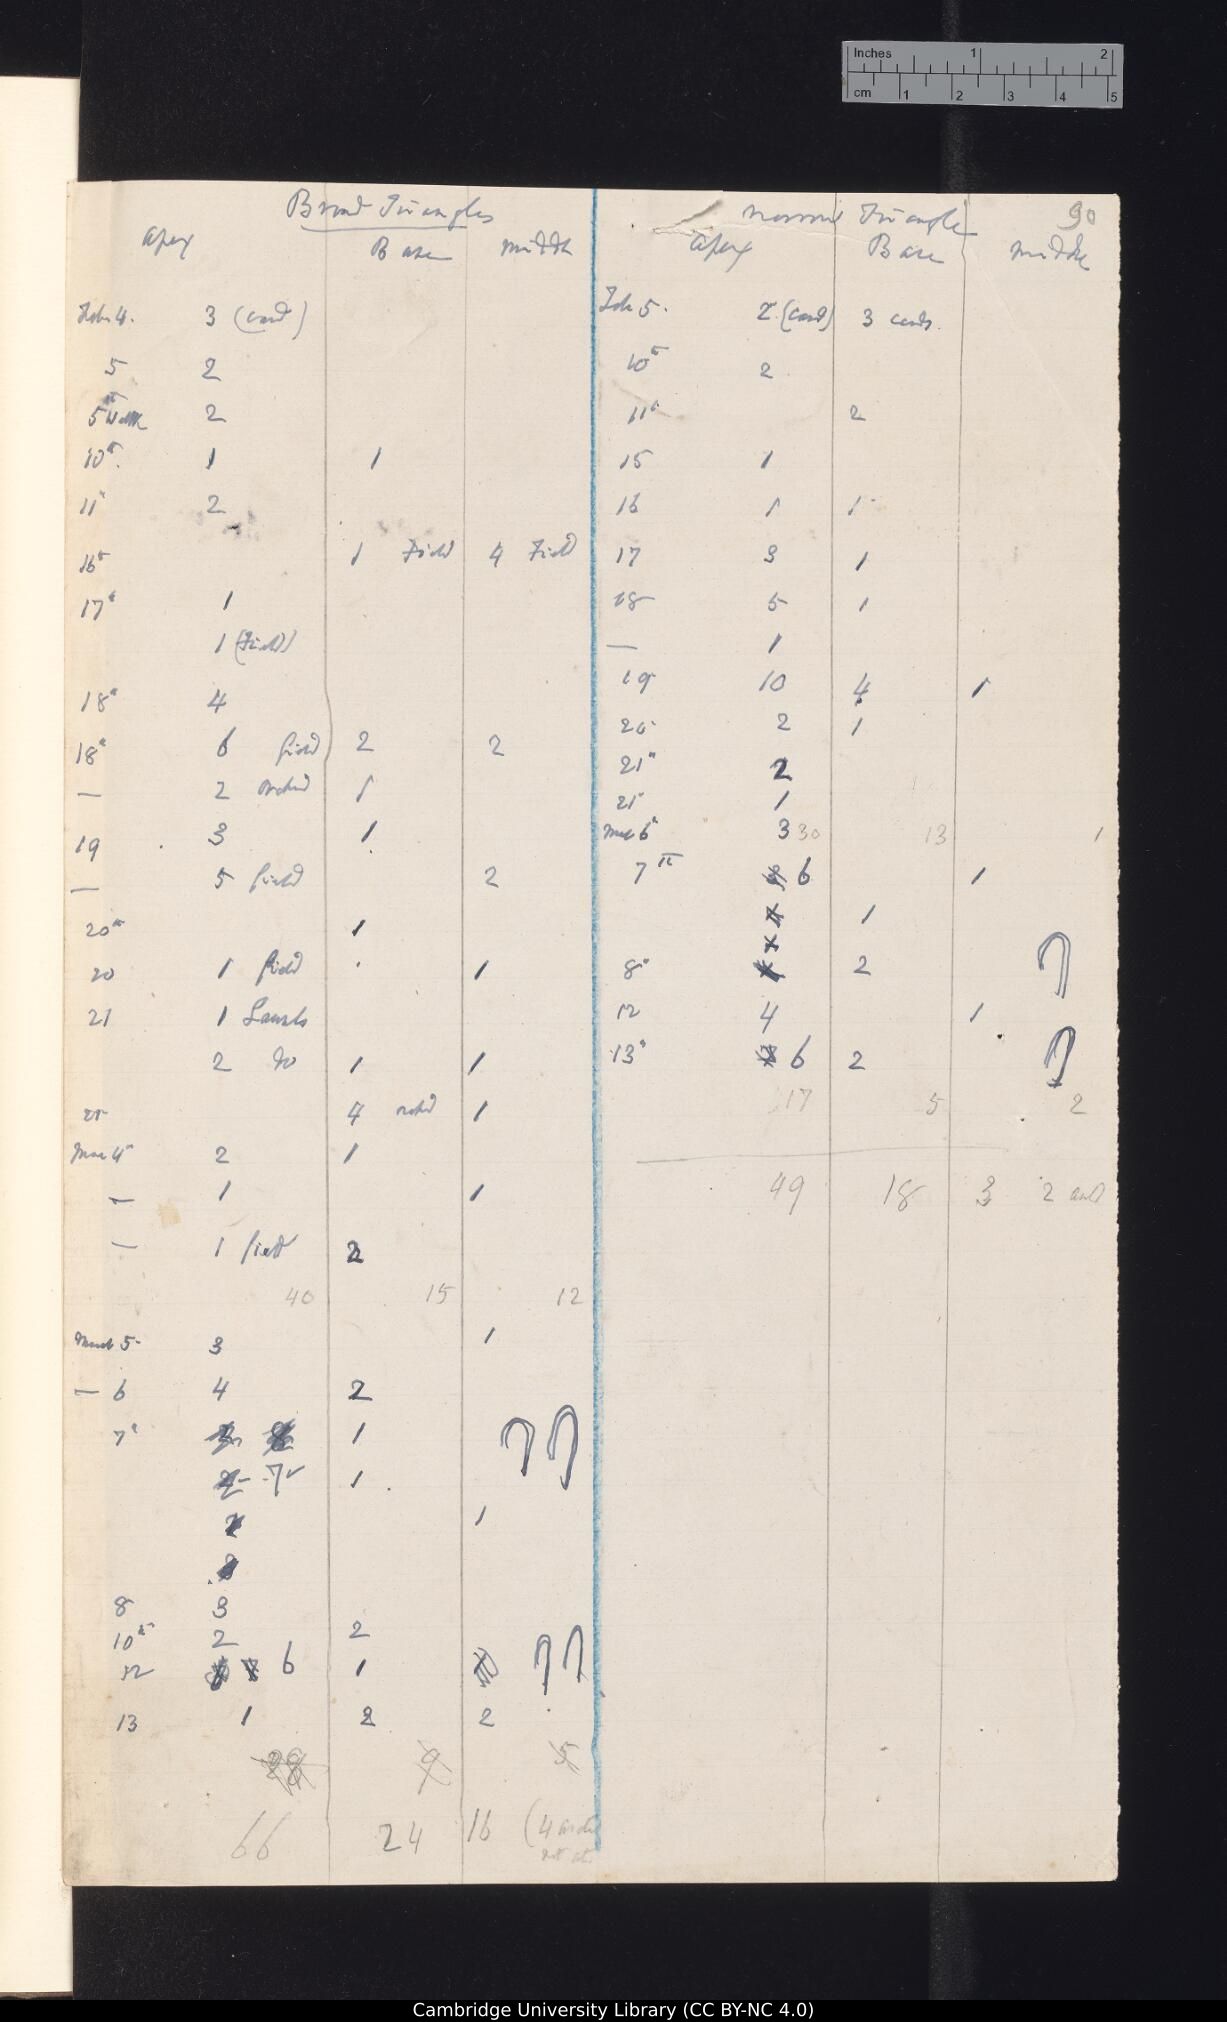 Inches 1 2
cm 1 2 3 4 5
90
Broad Triangles
apex Base middle
Feb. 4. 3 (card)
5 2
5th 2
10th. 1 1
11th 2
16th 1 Field 4 Field
17th 1
1 (Field)
18th 4
18th 6 field 2 2
— 2 orchd 1
19 3 1
— 5 field 2
20th 1
20 1 field 1
21 1 Laurels
2 do 1 1
21 4 orchd 1
Mar 4th 2 1
— 1 1
— 1 field 2
40 15 12
March 5 3 1
— 6 4 2
7th 1
7 1
1
8 3
10th 2 2
12 6 1
13 1 2 2
28 9 5
66 24 16 (4
Narrow Triangle
apex Base middle
Feb 5. 2 (card) 3 cards.
10th 2
11th 2
15 1
16 1 1
17 3 1
18 5 1
— 1
19 10 4 1
20 2 1
21st 2
21 1
Mar 6th 3 30 13 1
7th 6 1
1
8th 2
12 4 1
13th 6 2
17 5 2
49 18 3 2 and
Cambridge University Library (CC BY-NC 4.0)